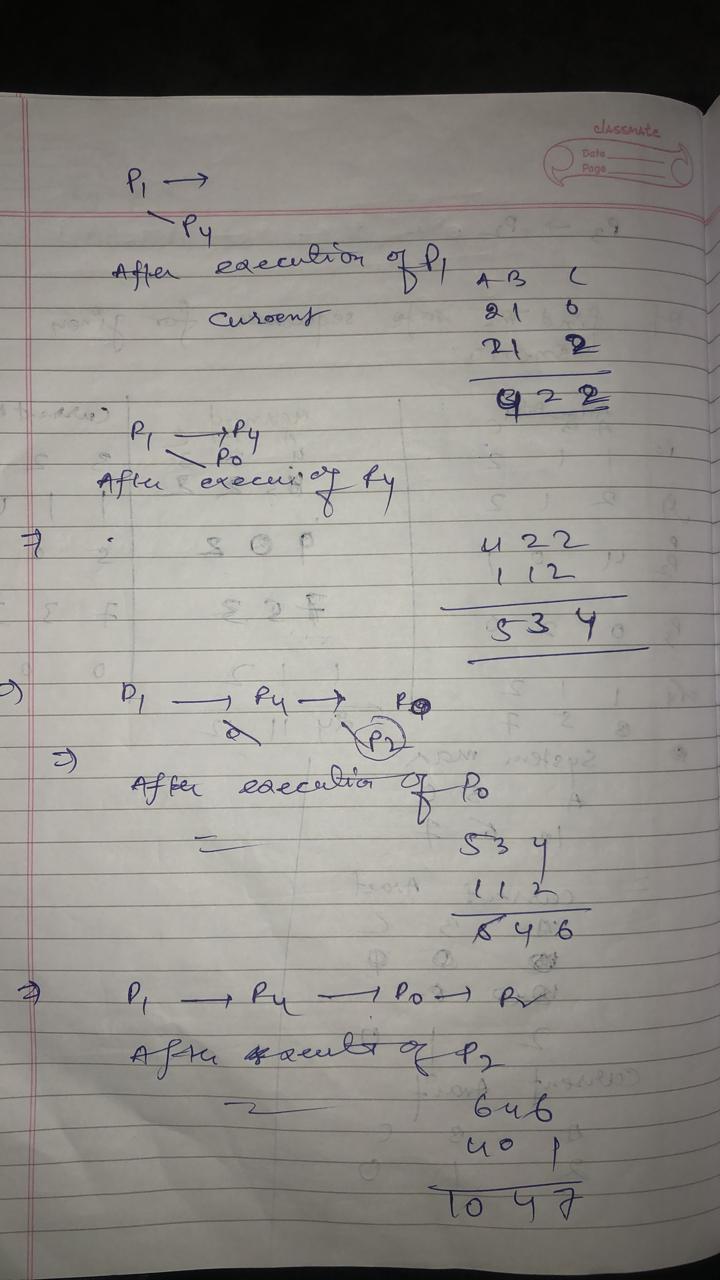 classmate
Date
Page
P1 →
P4
After execution of P1
A B C
Current 21 0
21 2
4 2 2
P1 → P4
P0
After execu. of P4
⇒ 4 2 2
1 1 2
5 3 4
P1 → P4 → P0
P2
⇒
After execution of P0
= 5 3 4
1 1 2
6 4 6
⇒ P1 → P4 → P0 → P2
After execut of P2
= 6 4 6
4 0 1
10 4 7